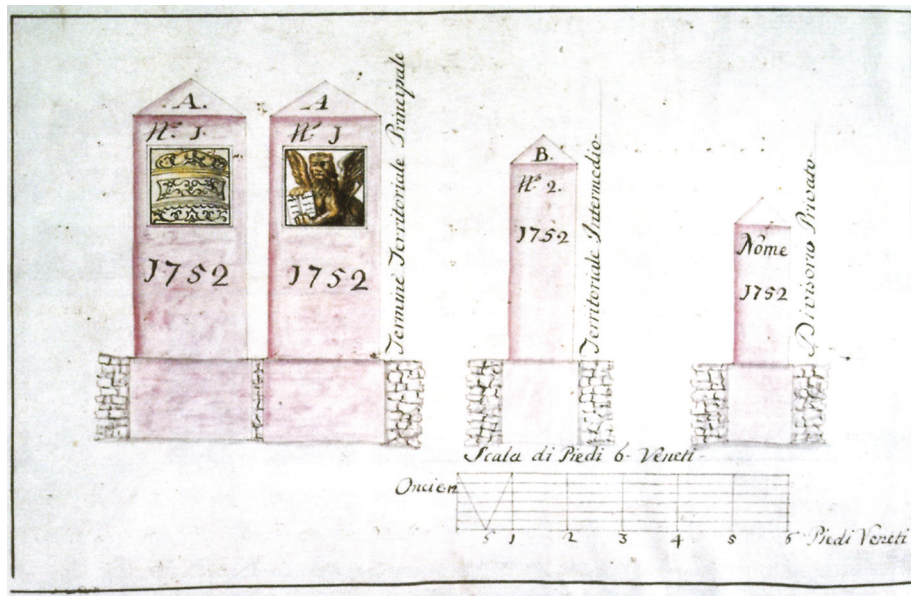 A.
Nº J.
1752
A
Nº J
1752
Termine Territoriale Principale
B.
Nº 2.
1752
Territoriale Intemedio
Nome
1752
Divisorio Privato
Scala di Piedi 6 Veneti
Oncien
5 1 2 3 4 5 6 Piedi Veneti